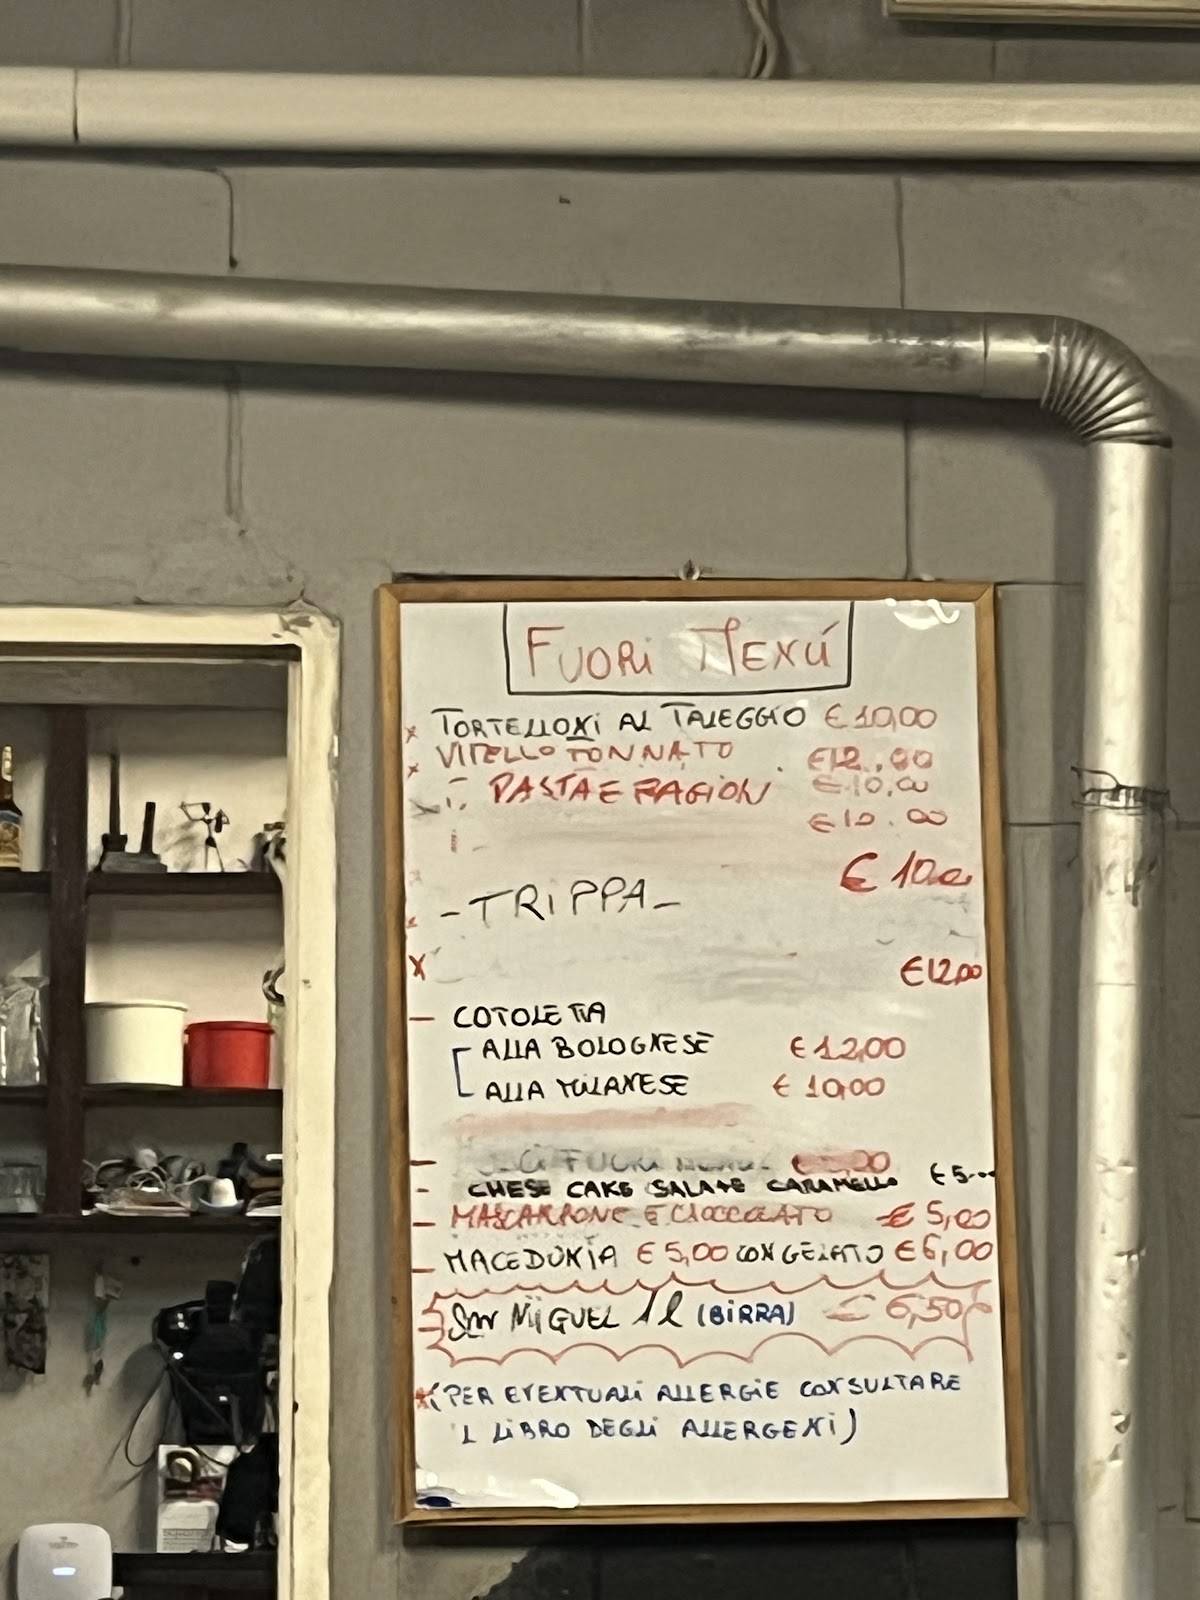 FUORi MENÚ
x TORTELLONi AL TALEGGIO €10,00
x VITELLO TONNATO €12,00
PASTA E FAGIOLI €10,00
€10.00
€10
-TRiPPA-
x €12,00
- COTOLETTA
ALLA BOLOGNESE €12,00
ALLA MiLANESE €10,00
- FUORI
- CHESE CAKE SALATE CARAMELLO €5
- MASCARPONE E CIOCCOLATO €5,00
- MACEDONIA €5,00 CON GELATO €6,00
San MiGUEL 1l (BiRRA) €6,50
*(PER EVENTUALi ALLERGiE CONSULTARE
iL LiBRO DEGLi ALLERGENi)